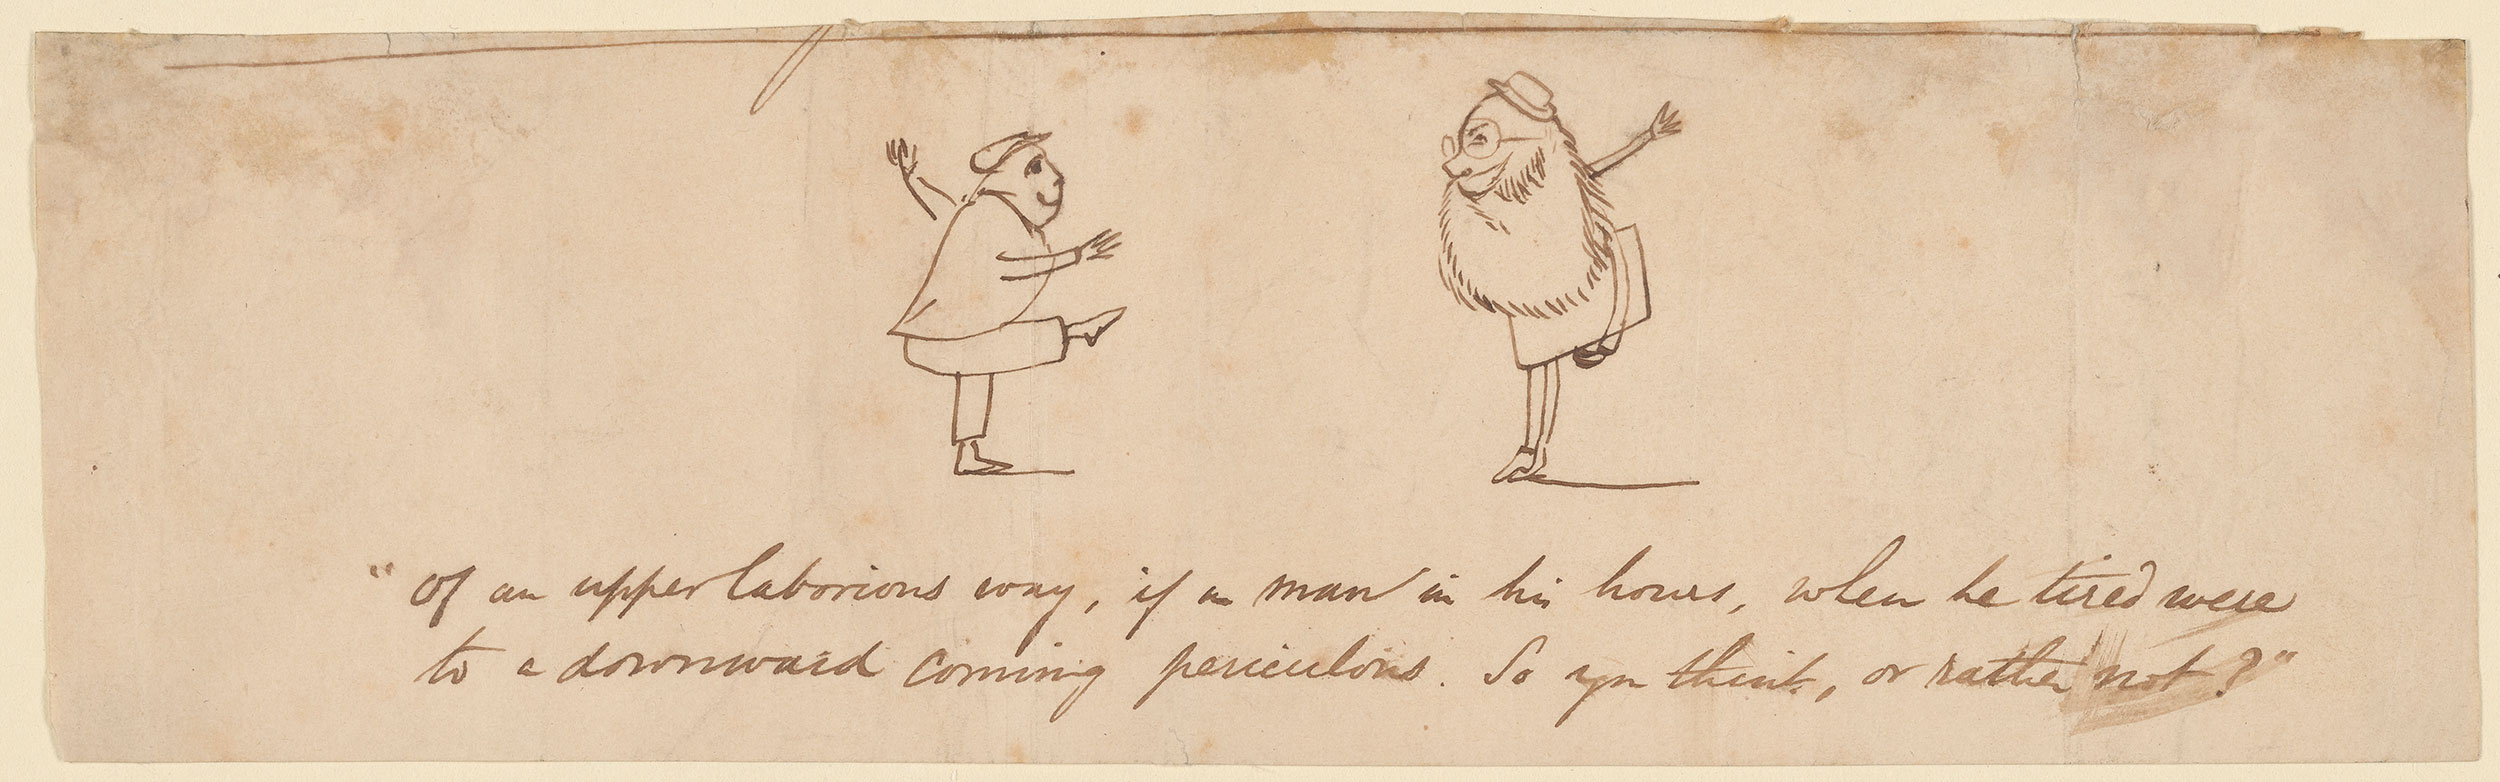 "Of an upper laborious way, if a man in his hours, when he tired were
to a downward coming periculous. So you think, or rather not?"